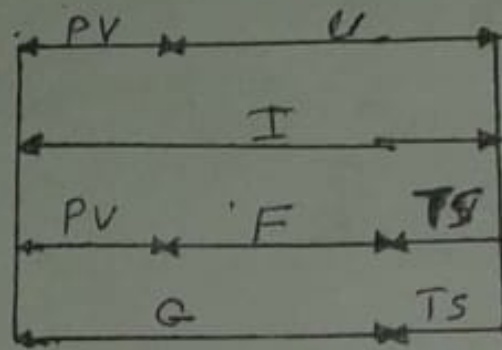 PV U
I
PV F TS
G TS